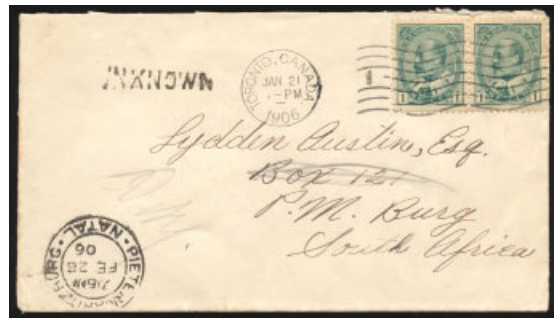 UNKNOWN
TORONTO, CANADA
JAN 21
-PM
1906
1 1
1 1
Lydden Austin, Esq.
Box 121
P.M. Burg
South Africa
PIETERMARITZBURG · NATAL
7.15AM
FE 26
06